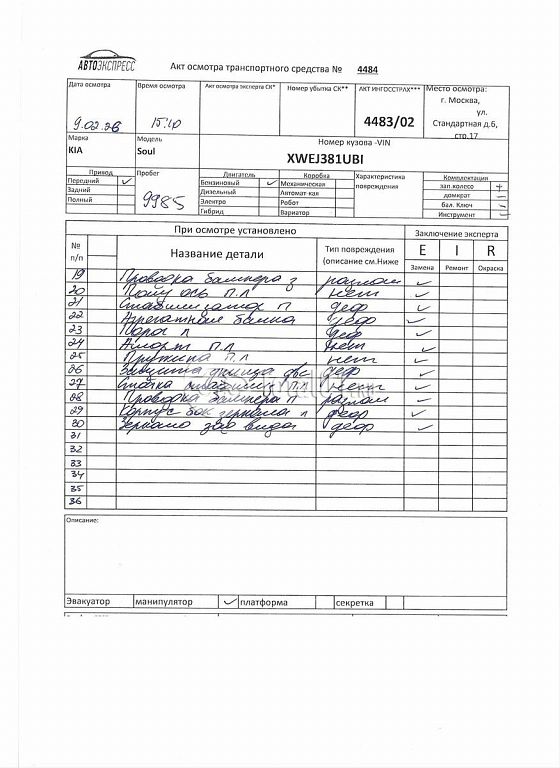 АВТОЭКСПРЕСС
Акт осмотра транспортного средства № 4484
Дата осмотра
Время осмотра
Акт осмотра эксперта СК*
Номер убытка СК**
АКТ ИНГОССТРАХ***
Место осмотра:
г. Москва,
ул.
Стандартная д.6,
стр.17
9.02.26
15.10
4483/02
Марка
Модель
Номер кузова -VIN
KIA
Soul
XWEJ381UBI
Привод
Пробег
Двигатель
Коробка
Характеристика повреждения
Комплектация
Передний
Бензиновый
Механическая
зап.колесо +
Задний
Дизельный
Автомат-кая
домкрат –
Полный
9985
Электро
Робот
бал. Ключ –
Гибрид
Вариатор
Инструмент –
При осмотре установлено
Заключение эксперта
№ п/п
Название детали
Тип повреждения (описание см.Ниже
E I R
Замена Ремонт Окраска
19 Проводка бампера з разлом
20 П.Л нет
21 Стабилизатор П деф
22 Агрегатная балка деф
23 Порог Л деф
24 Аморт П.Л нет
25 Пружина П.Л нет
26 Защита днища двс деф
27 Стойка П.Л нет
28 Проводка бампера П разлом
29 Корпус бок зеркала л деф
30 Зеркало зад вида деф
31
32
33
34
35
36
Описание:
Эвакуатор манипулятор платформа секретка